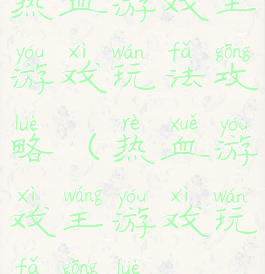 热血游戏王
yóu xì wán fǎ gōng
游戏玩法攻
lüè rè xuè yóu
略（热血游
xì wáng yóu xì wán
戏王游戏玩
fǎ gōng lüè